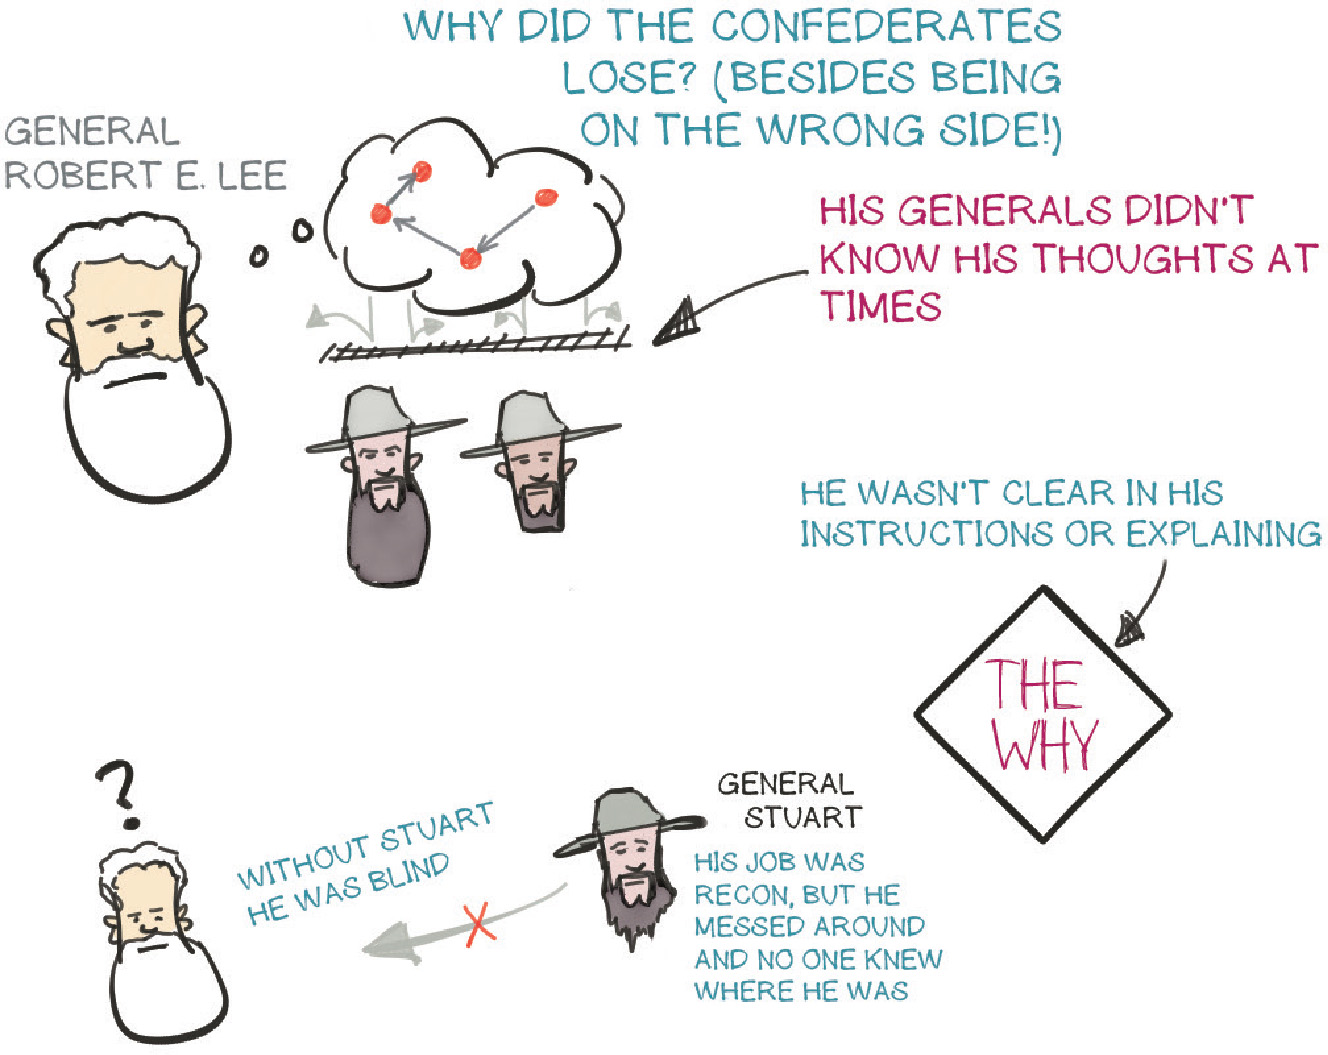 WHY DID THE CONFEDERATES
LOSE? (BESIDES BEING
ON THE WRONG SIDE!)
GENERAL
ROBERT E. LEE
HIS GENERALS DIDN'T
KNOW HIS THOUGHTS AT
TIMES
HE WASN'T CLEAR IN HIS
INSTRUCTIONS OR EXPLAINING
THE
WHY
?
WITHOUT STUART
HE WAS BLIND
GENERAL
STUART
HIS JOB WAS
RECON, BUT HE
MESSED AROUND
AND NO ONE KNEW
WHERE HE WAS